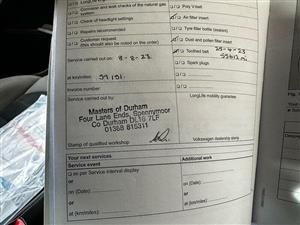 Corrosion and leak checks of the natural gas
system
Check of headlight settings
Repairs recommended
Customer request
(this should also be noted on the order)
Service carried out on: 8-8-23
at km/miles: 59 101
Invoice number
Service carried out by:
Masters of Durham
Four Lane Ends, Spennymoor
Co Durham DL16 7LF
01388 815311
Stamp of qualified workshop
Poly V-belt
Air filter insert
Tyre filler bottle (sealant)
Dust and pollen filter insert
Toothed belt 25-4-23
Spark plugs
LongLife mobility guarantee
Volkswagen dealership along
Your next services
Service event
as per Service interval display
or
on (Date):
or
at (km/miles):
Additional work
on (Date):
or
at (km/miles):